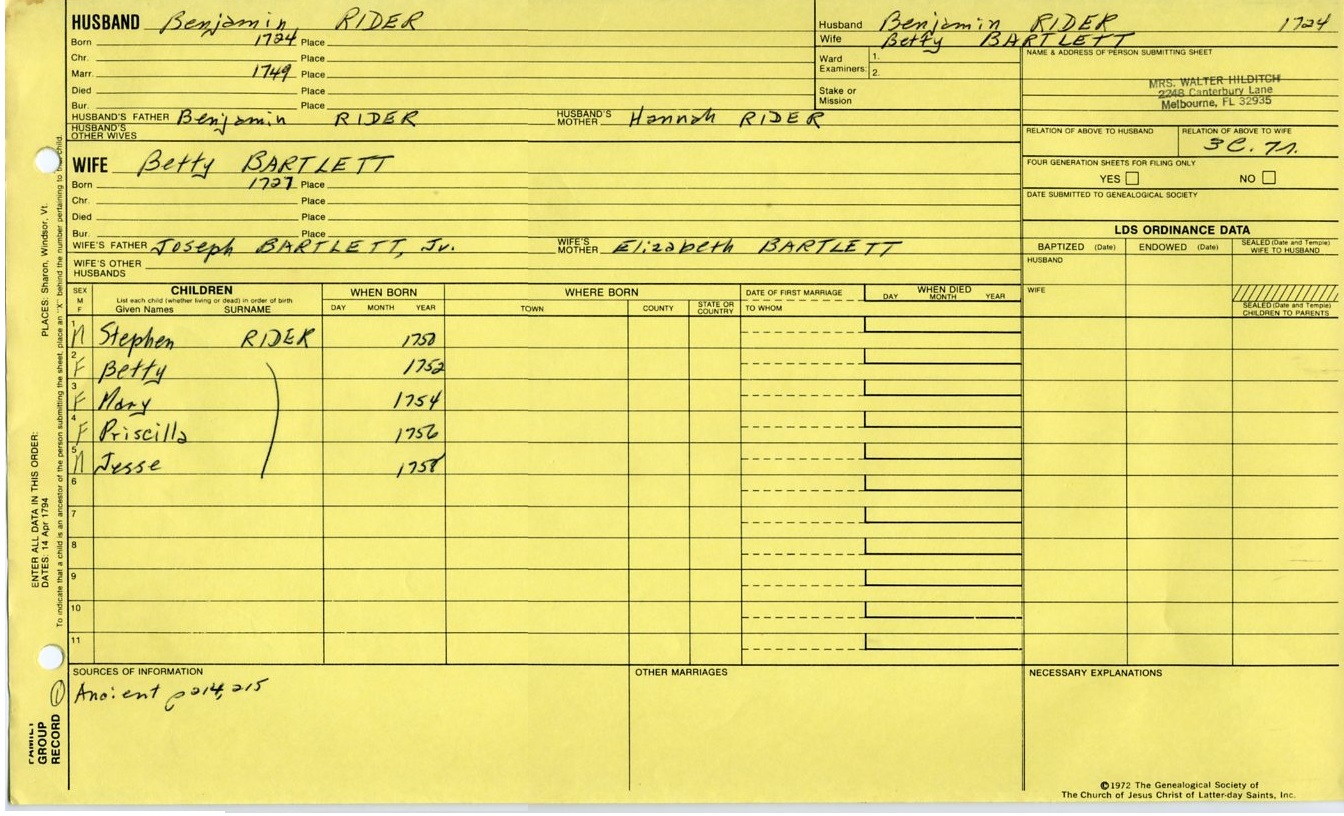 HUSBAND Benjamin RIDER
Born 1724 Place
Chr. Place
Marr. 1749 Place
Died Place
Bur. Place
HUSBAND'S FATHER Benjamin RIDER HUSBAND'S MOTHER Hannah RIDER
HUSBAND'S OTHER WIVES
WIFE Betty BARTLETT
Born 1727 Place
Chr. Place
Died Place
Bur. Place
WIFE'S FATHER Joseph BARTLETT, Jr. WIFE'S MOTHER Elizabeth BARTLETT
WIFE'S OTHER HUSBANDS
Husband Benjamin RIDER 1724
Wife Betty BARTLETT
Ward Examiners: 1.
2.
Stake or Mission
NAME & ADDRESS OF PERSON SUBMITTING SHEET
MRS. WALTER HILDITCH
2248 Canterbury Lane
Melbourne, FL 32935
RELATION OF ABOVE TO HUSBAND RELATION OF ABOVE TO WIFE
3C. 7r.
FOUR GENERATION SHEETS FOR FILING ONLY
YES NO
DATE SUBMITTED TO GENEALOGICAL SOCIETY
LDS ORDINANCE DATA
BAPTIZED (Date) ENDOWED (Date) SEALED (Date and Temple) WIFE TO HUSBAND
HUSBAND
WIFE
SEALED (Date and Temple) CHILDREN TO PARENTS
SEX M F CHILDREN WHEN BORN WHERE BORN DATE OF FIRST MARRIAGE WHEN DIED
List each child (whether living or dead) in order of birth
Given Names SURNAME DAY MONTH YEAR TOWN COUNTY STATE OR COUNTRY TO WHOM DAY MONTH YEAR
1 M Stephen RIDER 1750
2 F Betty 1752
3 F Mary 1754
4 F Priscilla 1756
5 M Jesse 1758
6
7
8
9
10
11
SOURCES OF INFORMATION OTHER MARRIAGES NECESSARY EXPLANATIONS
① Ancient p214, 215
©1972 The Genealogical Society of
The Church of Jesus Christ of Latter-day Saints, Inc.
FAMILY GROUP RECORD
ENTER ALL DATA IN THIS ORDER:
DATES: 14 Apr 1794
PLACES: Sharon, Windsor, Vt.
To indicate that a child is an ancestor of the person submitting the sheet, place an "X" behind the number pertaining to child.